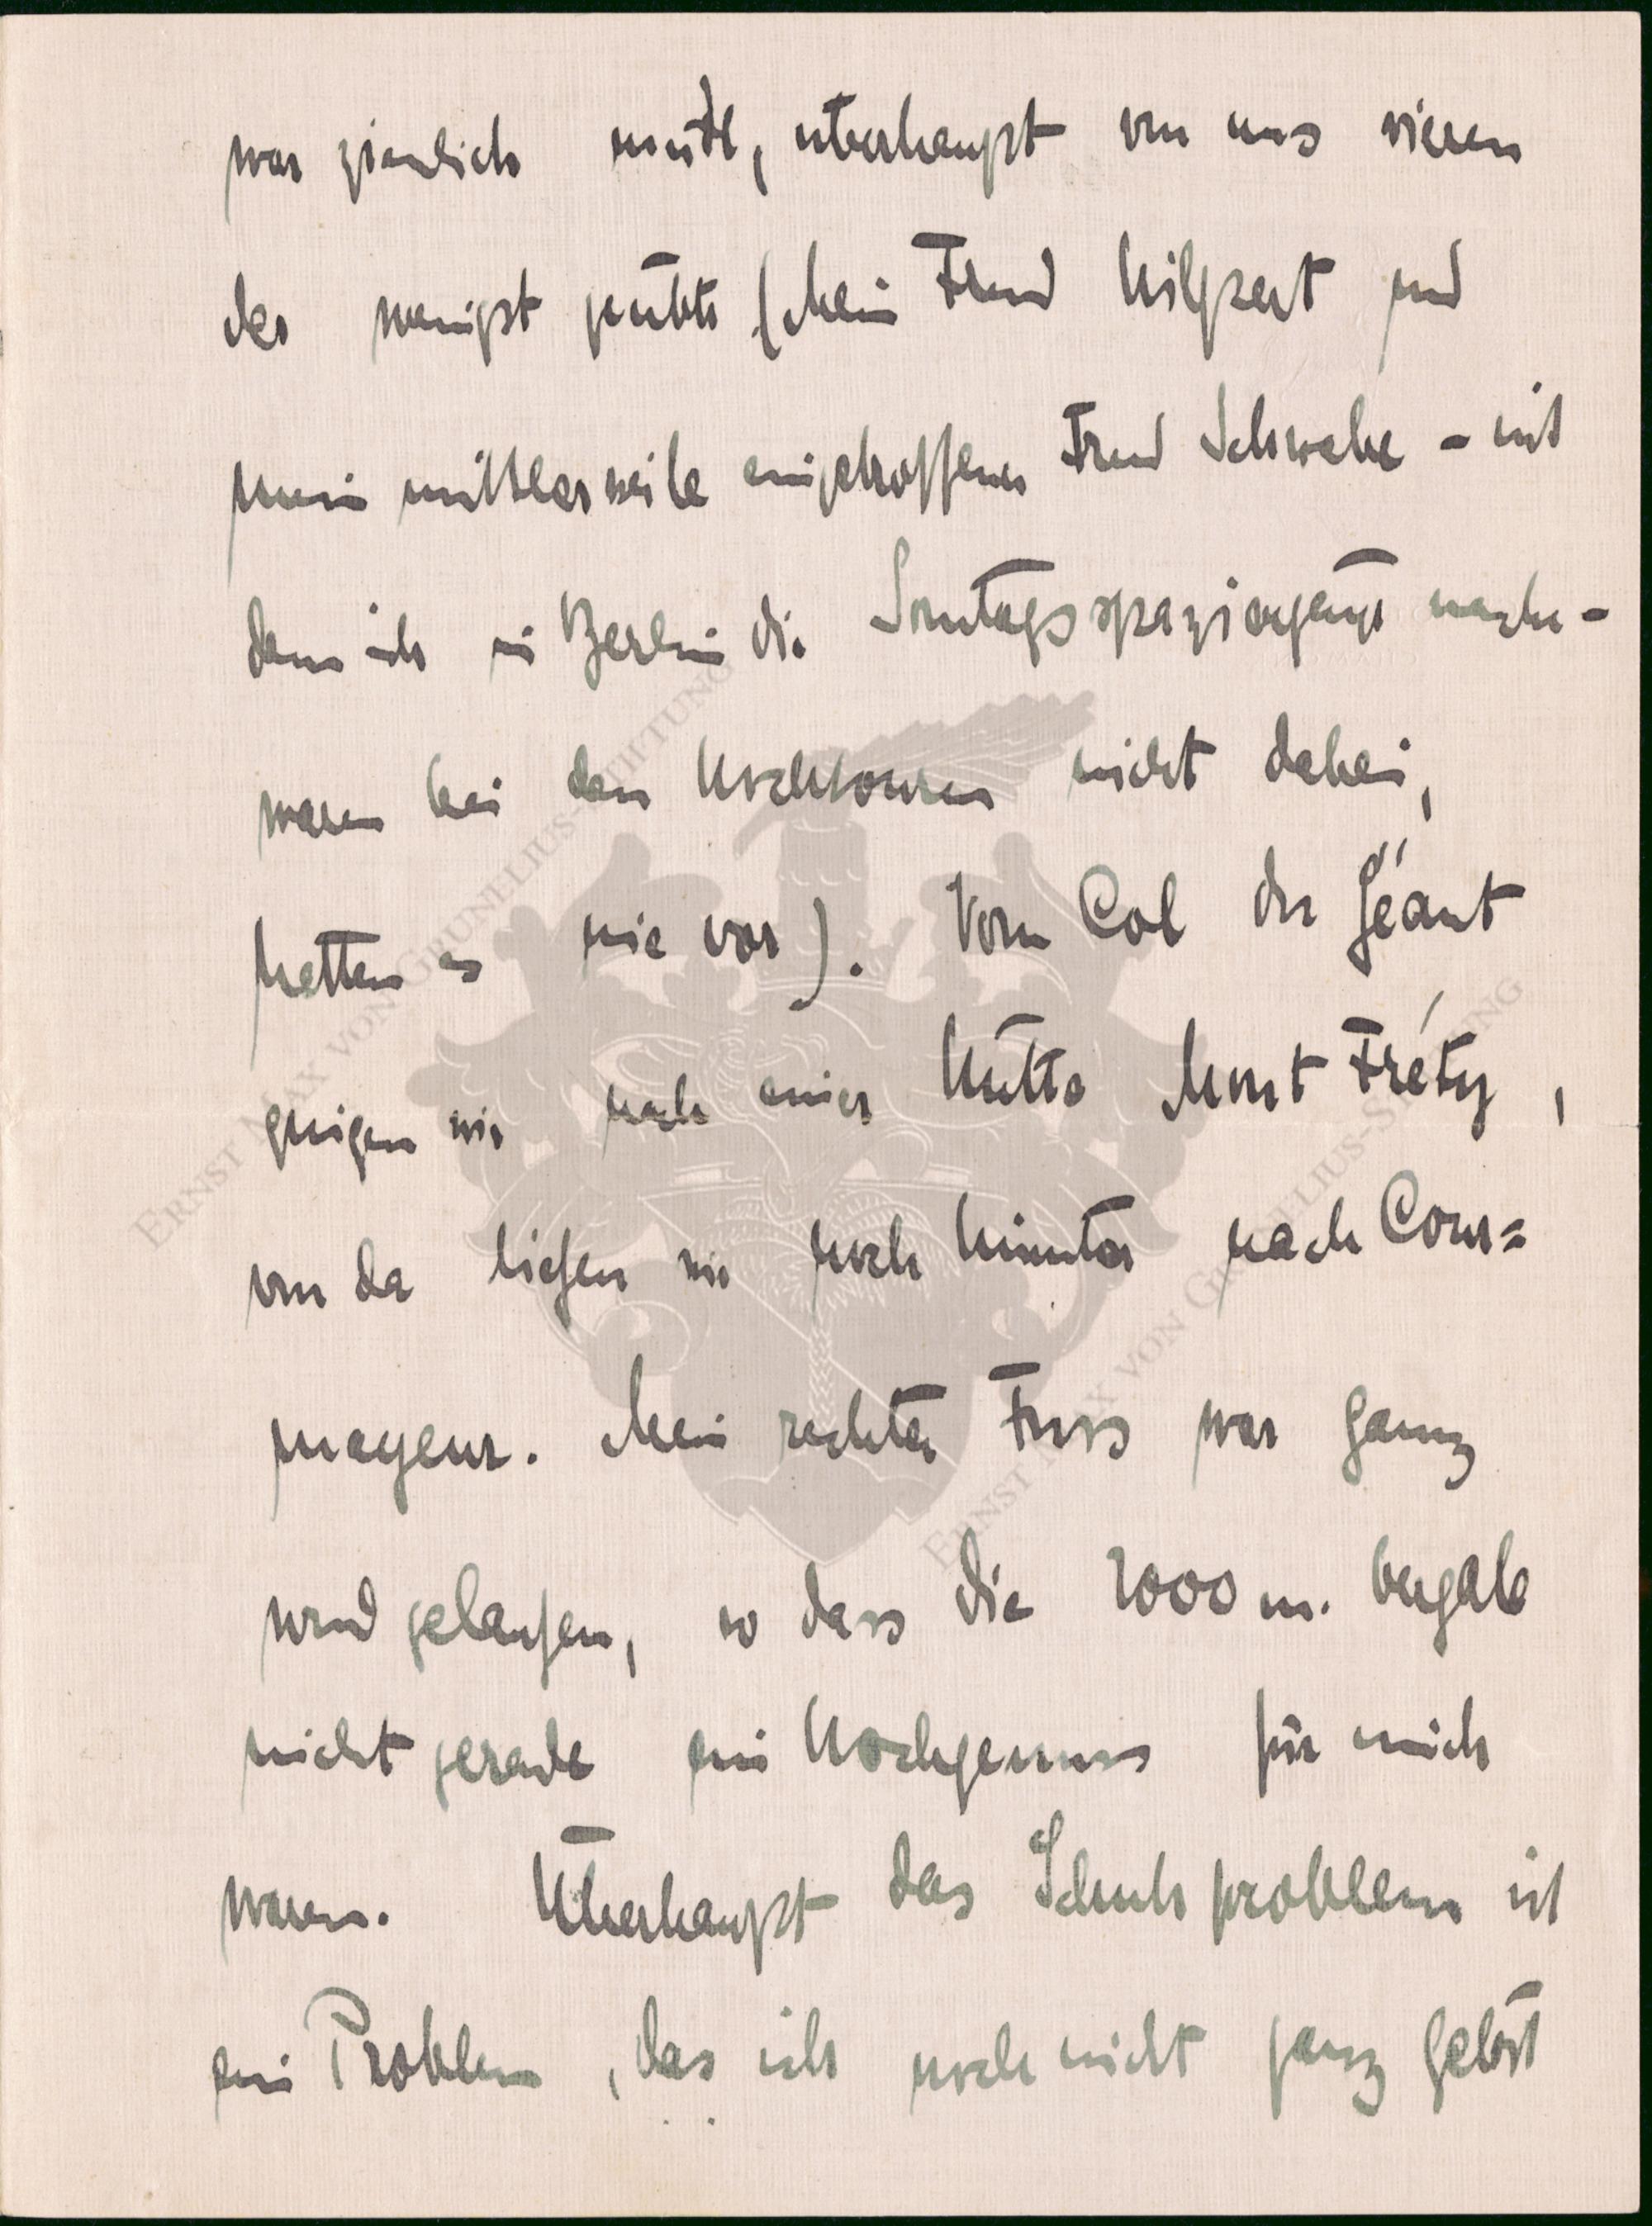 war ziemlich müde, überhaupt von uns vieren
der wenigst geübte (Mein Freund Hilpert und
mein mittlerweile eingetroffener Freund Schwabe - mit
dem ich in Berlin die Sonntagsspaziergänge mache -
waren bei den Hochtouren nicht dabei,
hatten es nie vor). Vom Col du Géant
gingen wir nach einer Hütte Mont Fréty,
von da liefen wir noch hinunter nach Cour=
mayeur. Mein rechter Fuss war ganz
wund gelaufen, so dass die 2000 m. bergab
nicht gerade ein Hochgenuss für mich
waren. Überhaupt das Schuhproblem ist
ein Problem, das ich noch nicht ganz gelöst
ERNST MAX VON GRUNELIUS-STIFTUNG
ERNST MAX VON GRUNELIUS-STIFTUNG